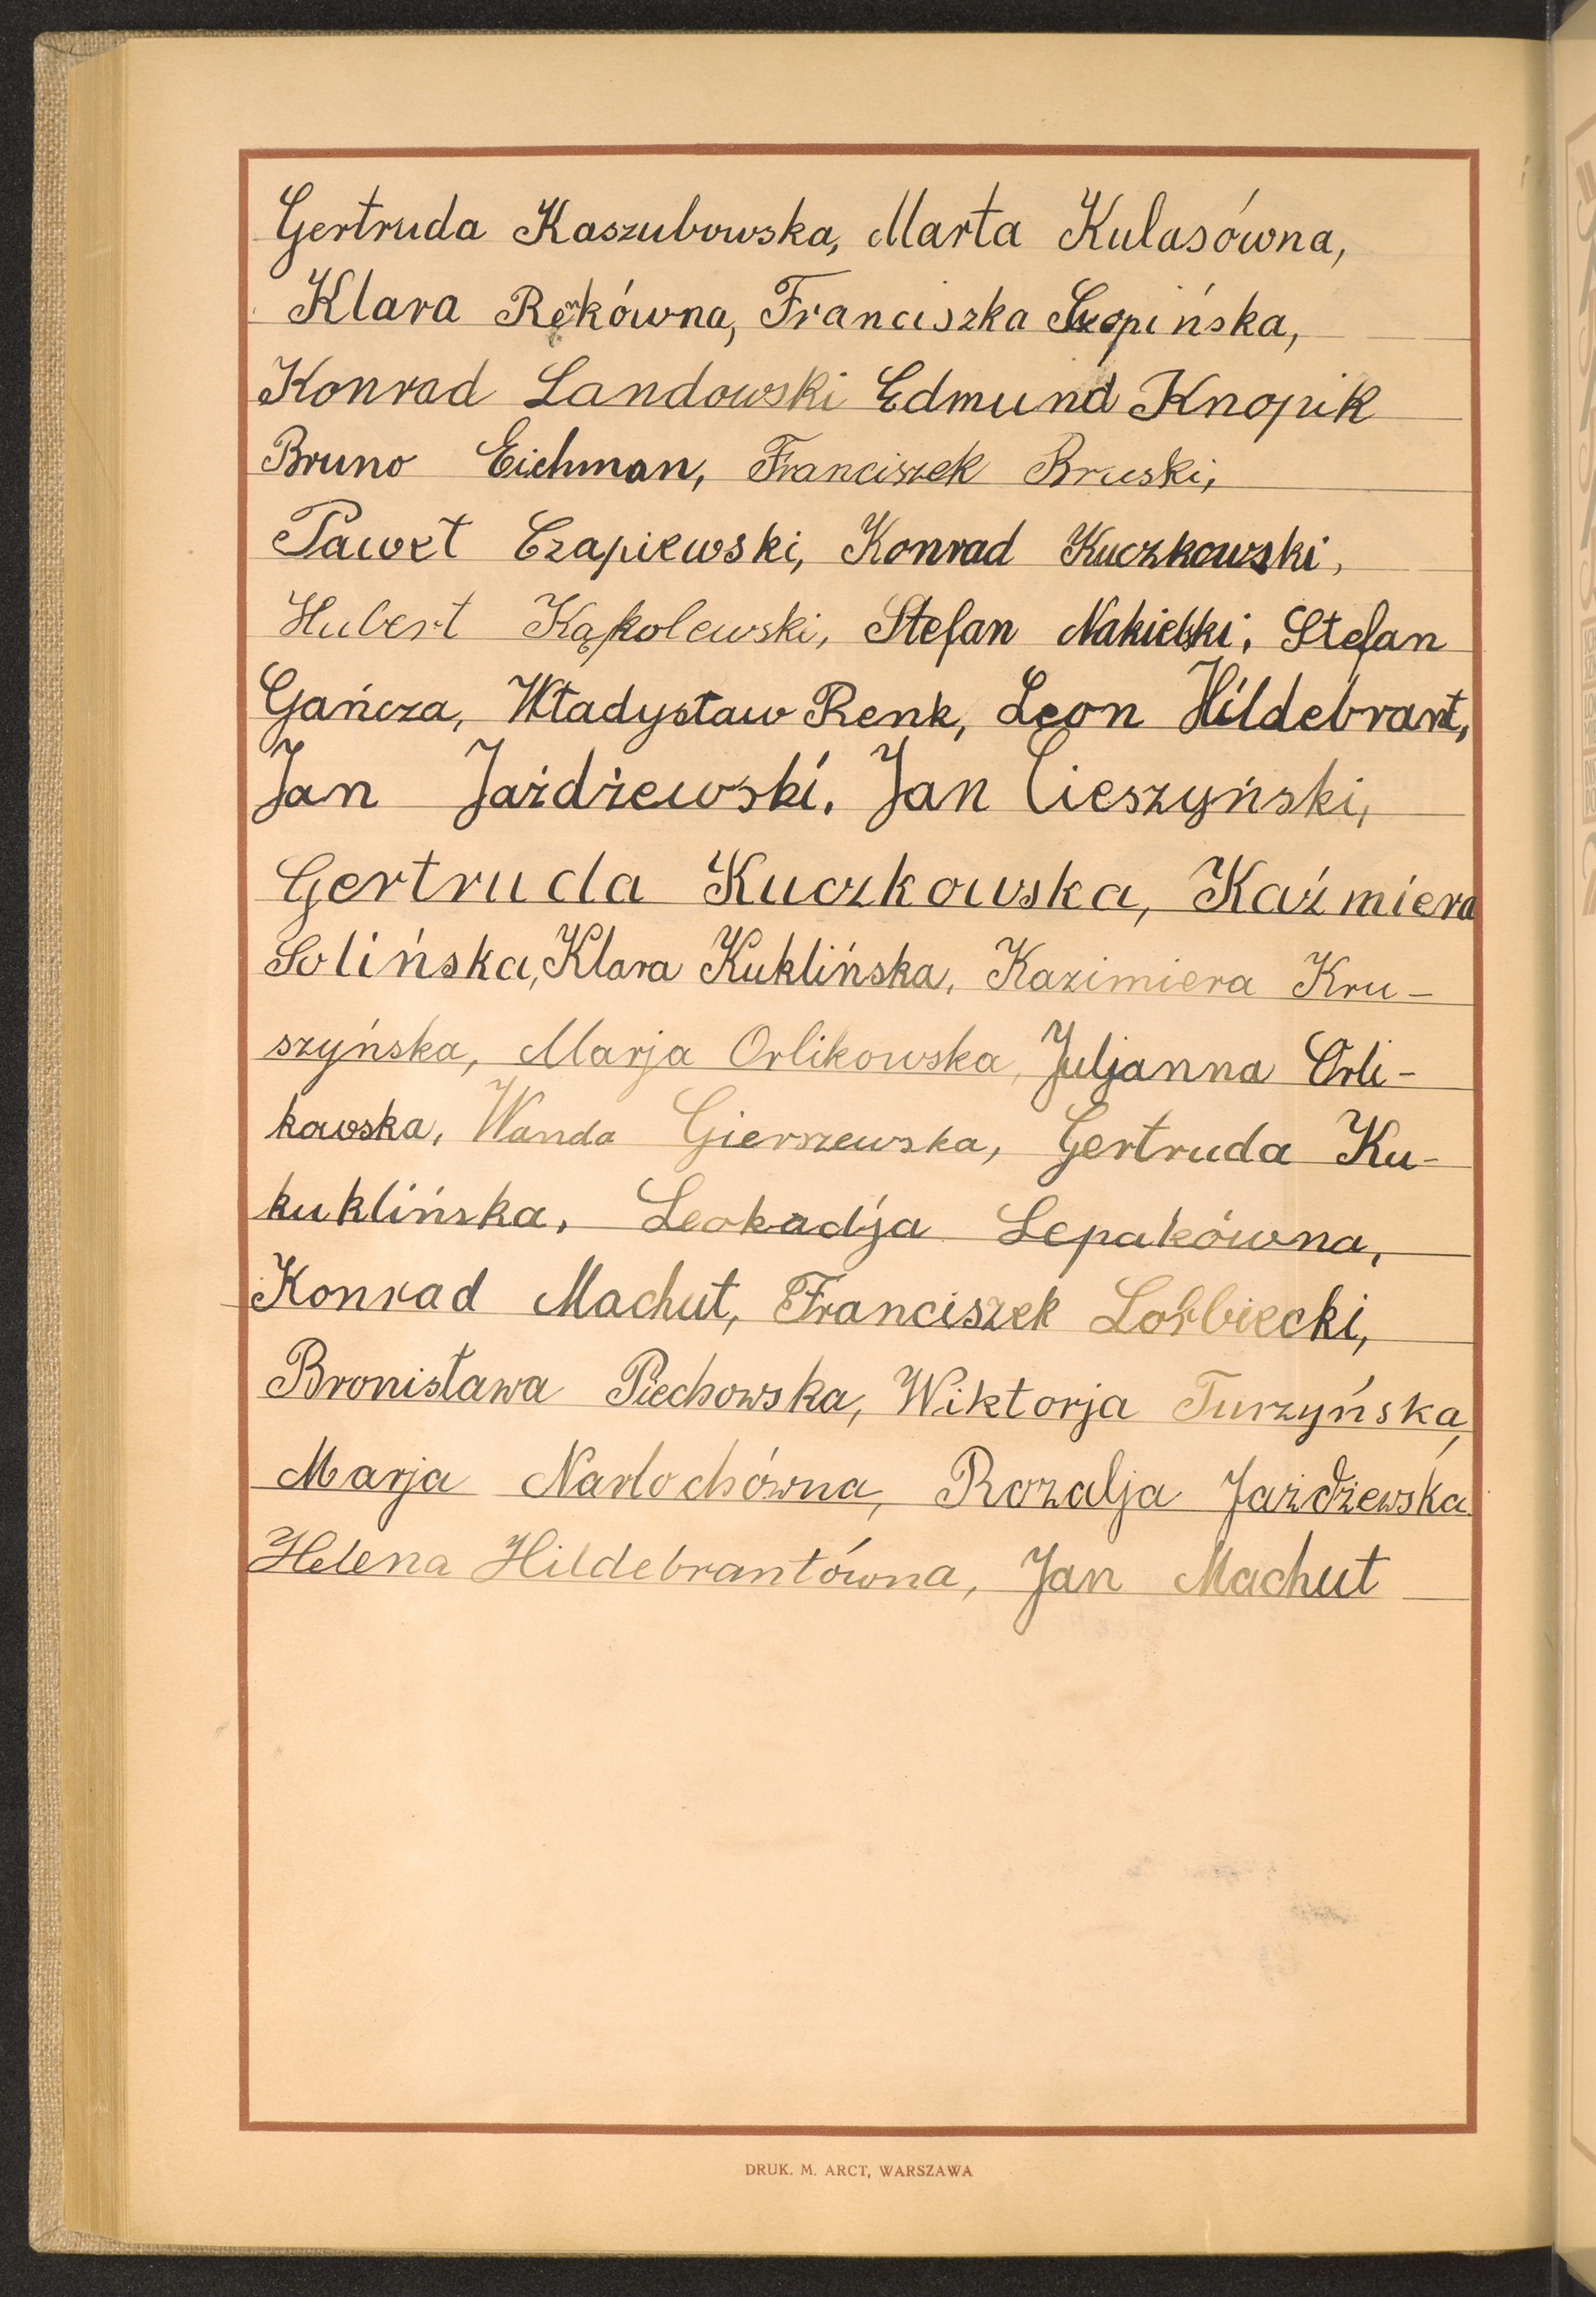 Gertruda Kaszubowska, Marta Kulasówna,
Klara Rękówna, Franciszka Szopińska,
Konrad Landowski Edmund Knopik
Bruno Eichman, Franciszek Bruski,
Paweł Czapiewski, Konrad Kuczkowski,
Hubert Kąkolewski, Stefan Nakielski, Stefan
Gańcza, Władysław Renk, Leon Hildebrant,
Jan Jażdżewski, Jan Cieszyński,
Gertruda Kuczkowska, Kaźmiera
Solińska, Klara Kuklińska, Kazimiera Kru-
szyńska, Marja Orlikowska, Juljanna Orli-
kowska, Wanda Gierszewska, Gertruda Ku-
kuklińska, Leokadja Lepakówna,
Konrad Machut, Franciszek Lorbiecki,
Bronisława Piechowska, Wiktorja Turzyńska,
Marja Narlochówna, Rozalja Jażdżewska
Helena Hildebrantówna, Jan Machut
DRUK. M. ARCT, WARSZAWA